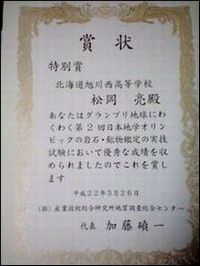 賞状
特別賞
北海道旭川西高等学校
松岡 亮殿
あなたはグランプリ地球にわ
くわく第2回日本地学オリン
ピックの岩石・鉱物鑑定の実技
試験において優秀な成績を収
められましたのでこれを賞し
ます
平成22年3月26日
(独)産業技術総合研究所地質調査総合センター
代表 加藤碵一